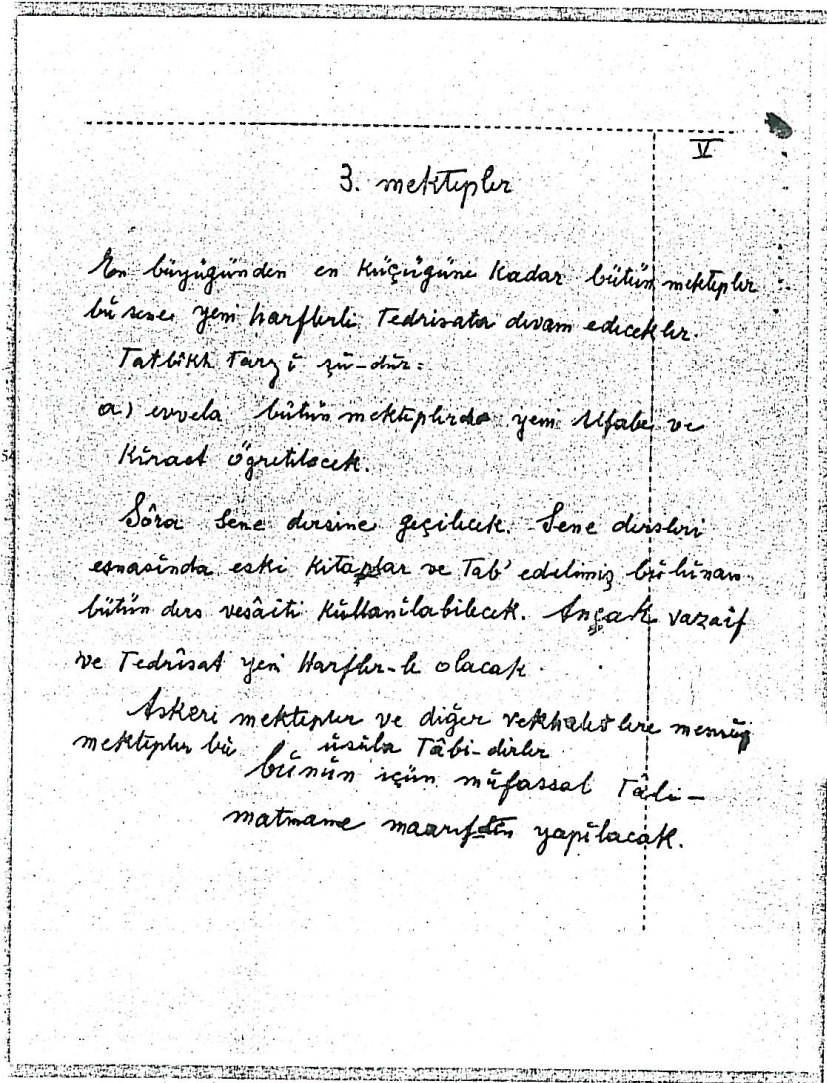 V
3. mektepler
En büyügünden en küçügüne kadar bütün mektepler
bu sene yeni harflerle Tedrisata devam edecekler.
Tatbikk Tarzî şu-dur:
a) evvela bütün mekteplerde yeni Alfabe ve
Kiraet ögretilecek.
54
Sôra Sene dersine geçilecek. Sene dersleri
esnasinda eski kitaplar ve Tab' edilmiş bulunan
bütün ders vesâiti kullanîlabilecek. Ançak vazaif
ve Tedrîsat yeni Harfler-le olacak.
Askeri mektepler ve diğer vekhaletlere mensup
mektepler bu usula Tâbi-dirler
bunun için mufassal Tâli-
matname maarifden yapîlacak.